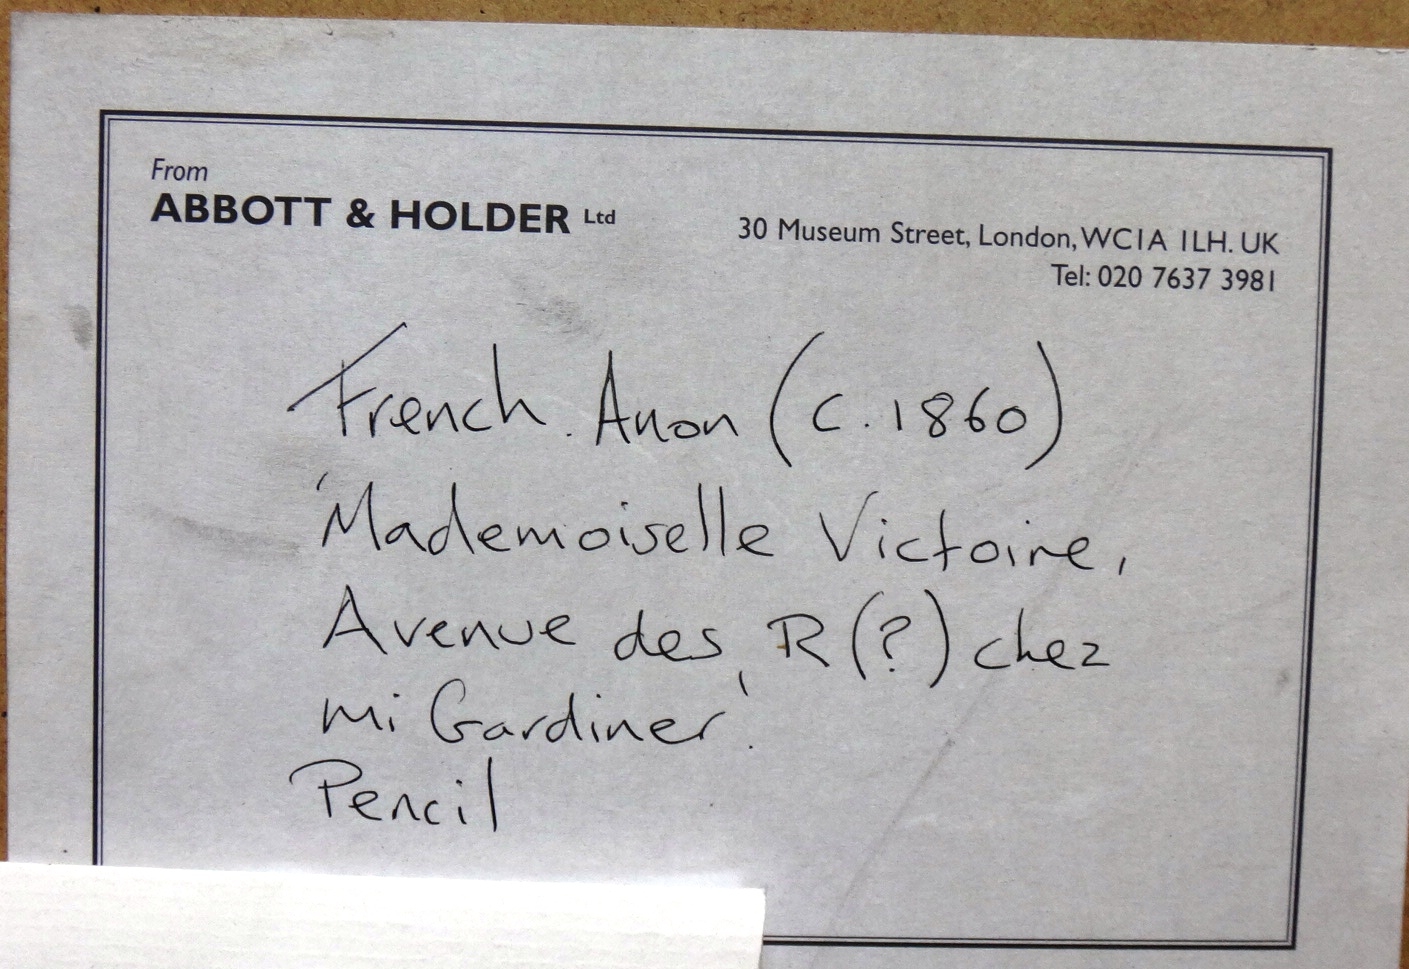 From
ABBOTT & HOLDER Ltd
30 Museum Street, London, WC1A 1LH. UK
Tel: 020 7637 3981
French. Anon (c. 1860)
'Mademoiselle Victoire,
Avenue des R(?) chez
mi Gardiner'.
Pencil